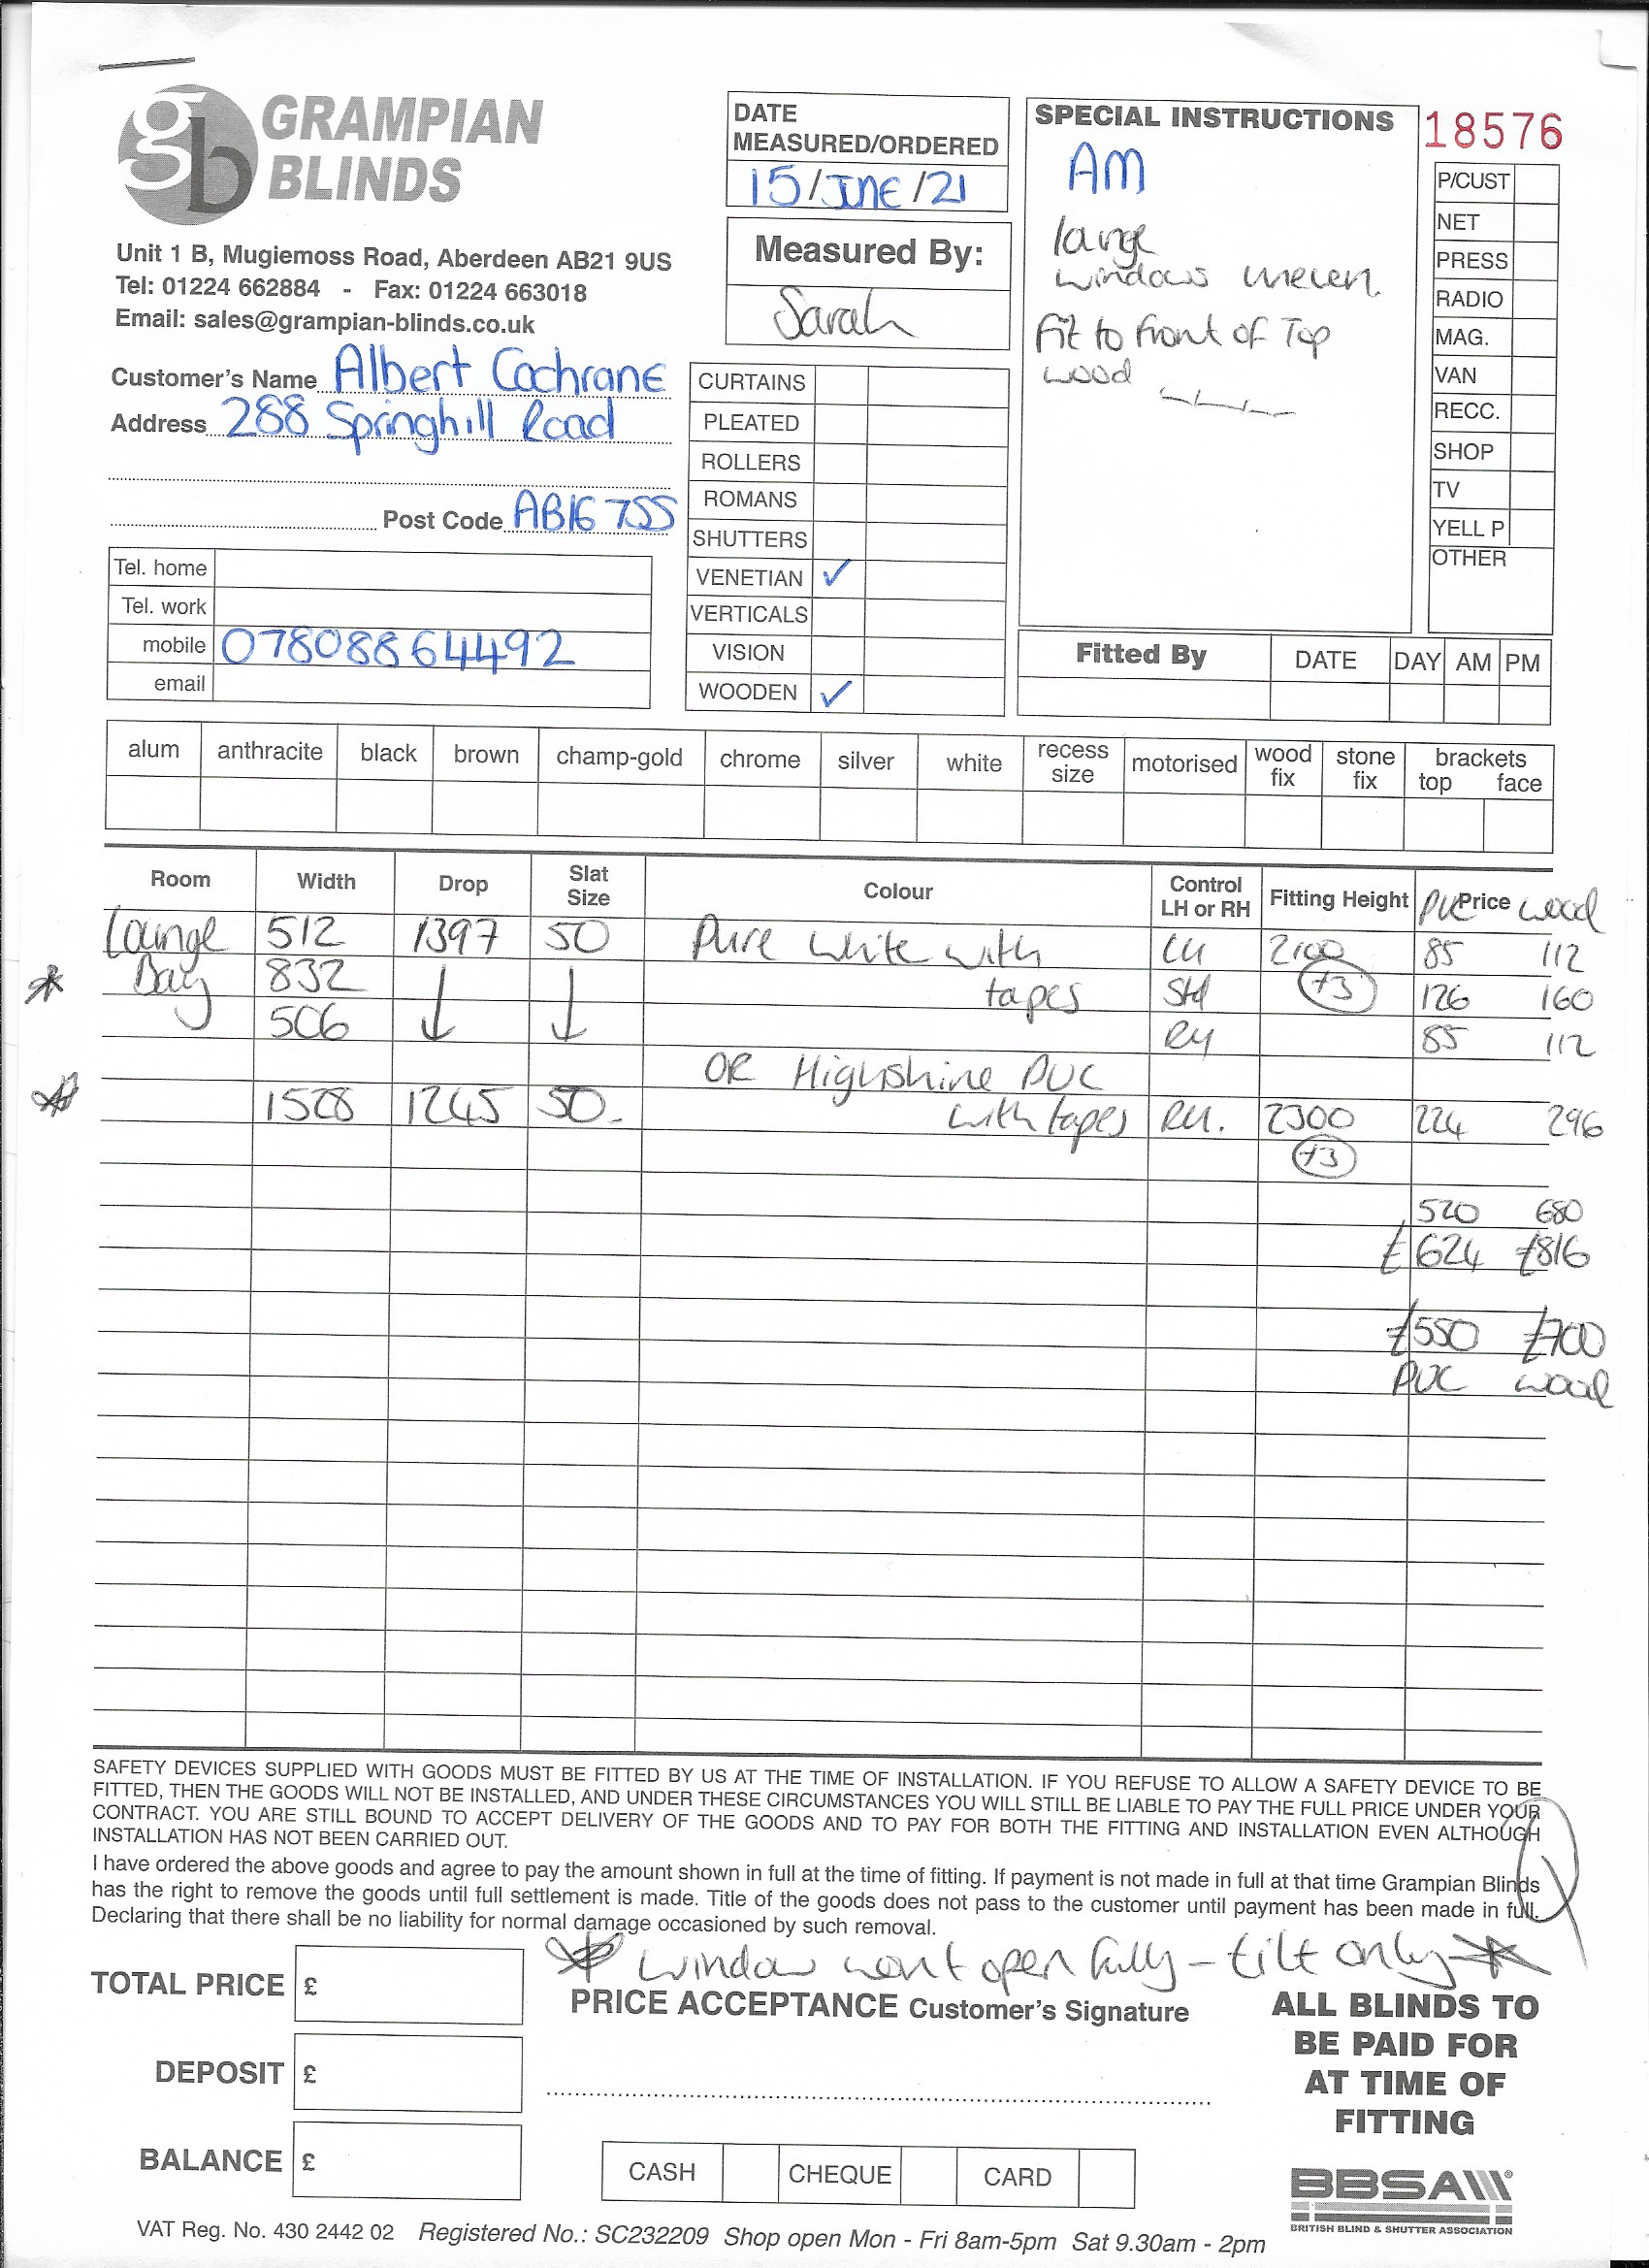 gb GRAMPIAN
BLINDS
Unit 1 B, Mugiemoss Road, Aberdeen AB21 9US
Tel: 01224 662884 - Fax: 01224 663018
Email: sales@grampian-blinds.co.uk
DATE
MEASURED/ORDERED
15/JUNE/21
Measured By:
Sarah
SPECIAL INSTRUCTIONS
AM
lounge
windows uneven.
Fit to front of Top
wood
18576
P/CUST
NET
PRESS
RADIO
MAG.
VAN
RECC.
SHOP
TV
YELL P
OTHER
Customer's Name Albert Cochrane
Address 288 Springhill Road
Post Code AB16 7SS
Tel. home
Tel. work
mobile 07808864492
email
CURTAINS
PLEATED
ROLLERS
ROMANS
SHUTTERS
VENETIAN ✓
VERTICALS
VISION
WOODEN ✓
Fitted By DATE DAY AM PM
alum anthracite black brown champ-gold chrome silver white recess size motorised wood fix stone fix brackets top face
Room Width Drop Slat Size Colour Control LH or RH Fitting Height PVC Price wood
Lounge 512 1397 50 Pure white with LH 2100 85 112
* Bay 832 ↓ ↓ tapes Std +3 126 160
506 RH 85 112
OR Highshine PVC
* 1528 1245 50 with tapes RH. 2300 224 296
+3
520 680
£624 £816
£550 £700
PVC wood
SAFETY DEVICES SUPPLIED WITH GOODS MUST BE FITTED BY US AT THE TIME OF INSTALLATION. IF YOU REFUSE TO ALLOW A SAFETY DEVICE TO BE
FITTED, THEN THE GOODS WILL NOT BE INSTALLED, AND UNDER THESE CIRCUMSTANCES YOU WILL STILL BE LIABLE TO PAY THE FULL PRICE UNDER YOUR
CONTRACT. YOU ARE STILL BOUND TO ACCEPT DELIVERY OF THE GOODS AND TO PAY FOR BOTH THE FITTING AND INSTALLATION EVEN ALTHOUGH
INSTALLATION HAS NOT BEEN CARRIED OUT.
I have ordered the above goods and agree to pay the amount shown in full at the time of fitting. If payment is not made in full at that time Grampian Blinds
has the right to remove the goods until full settlement is made. Title of the goods does not pass to the customer until payment has been made in full.
Declaring that there shall be no liability for normal damage occasioned by such removal.
* window wont open fully - tilt only *
TOTAL PRICE £
PRICE ACCEPTANCE Customer's Signature
DEPOSIT £
BALANCE £
CASH CHEQUE CARD
ALL BLINDS TO
BE PAID FOR
AT TIME OF
FITTING
BBSA
BRITISH BLIND & SHUTTER ASSOCIATION
VAT Reg. No. 430 2442 02 Registered No.: SC232209 Shop open Mon - Fri 8am-5pm Sat 9.30am - 2pm